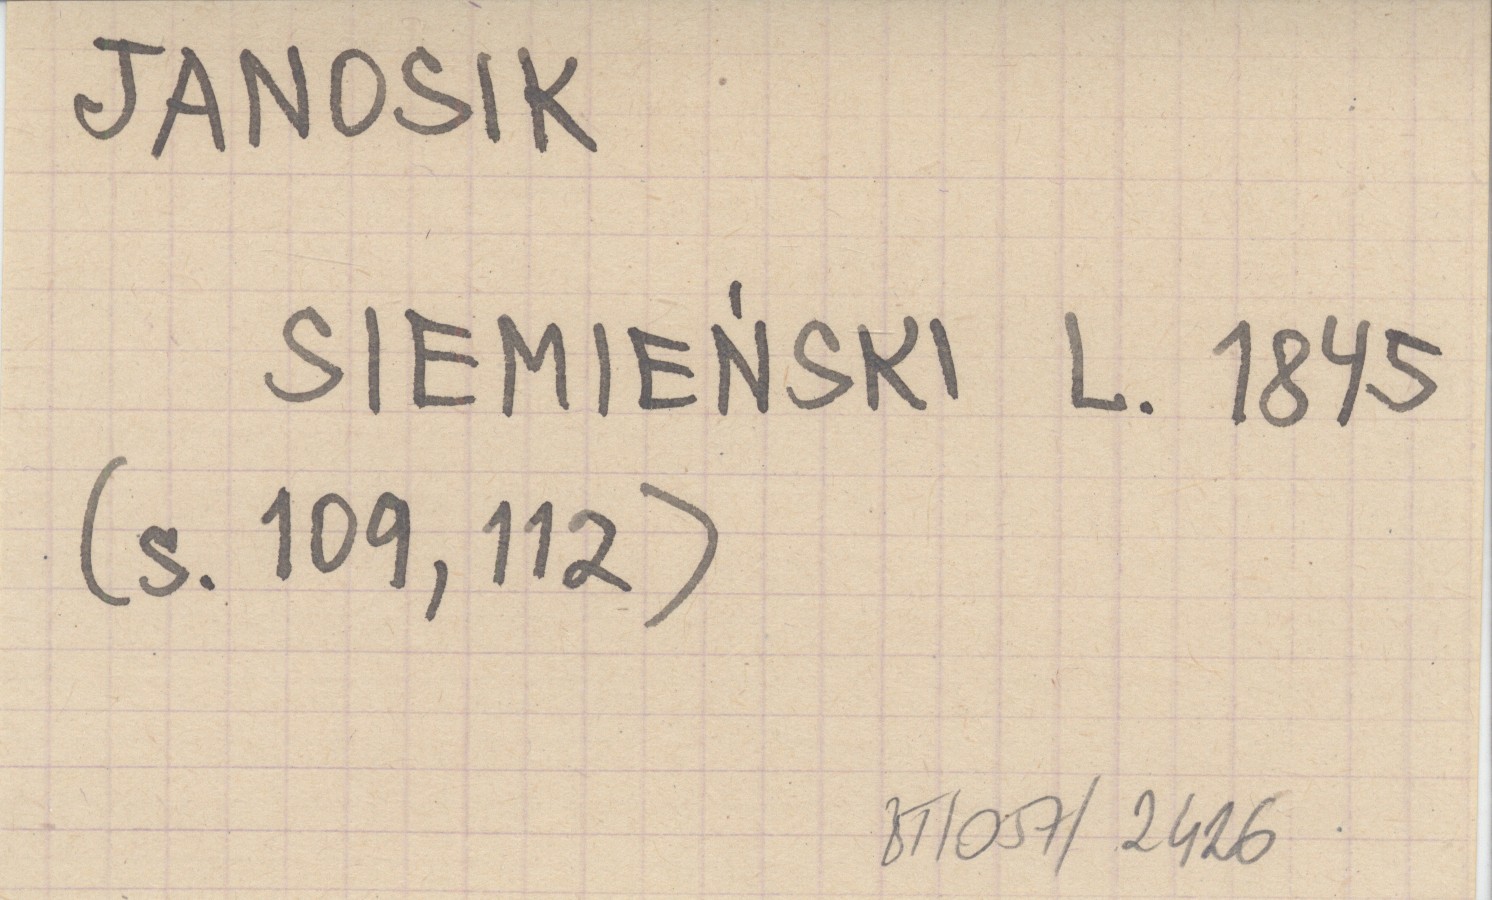 JANOSIK
SIEMIEŃSKI L. 1845
(s. 109, 112)
BT/057/ 2426